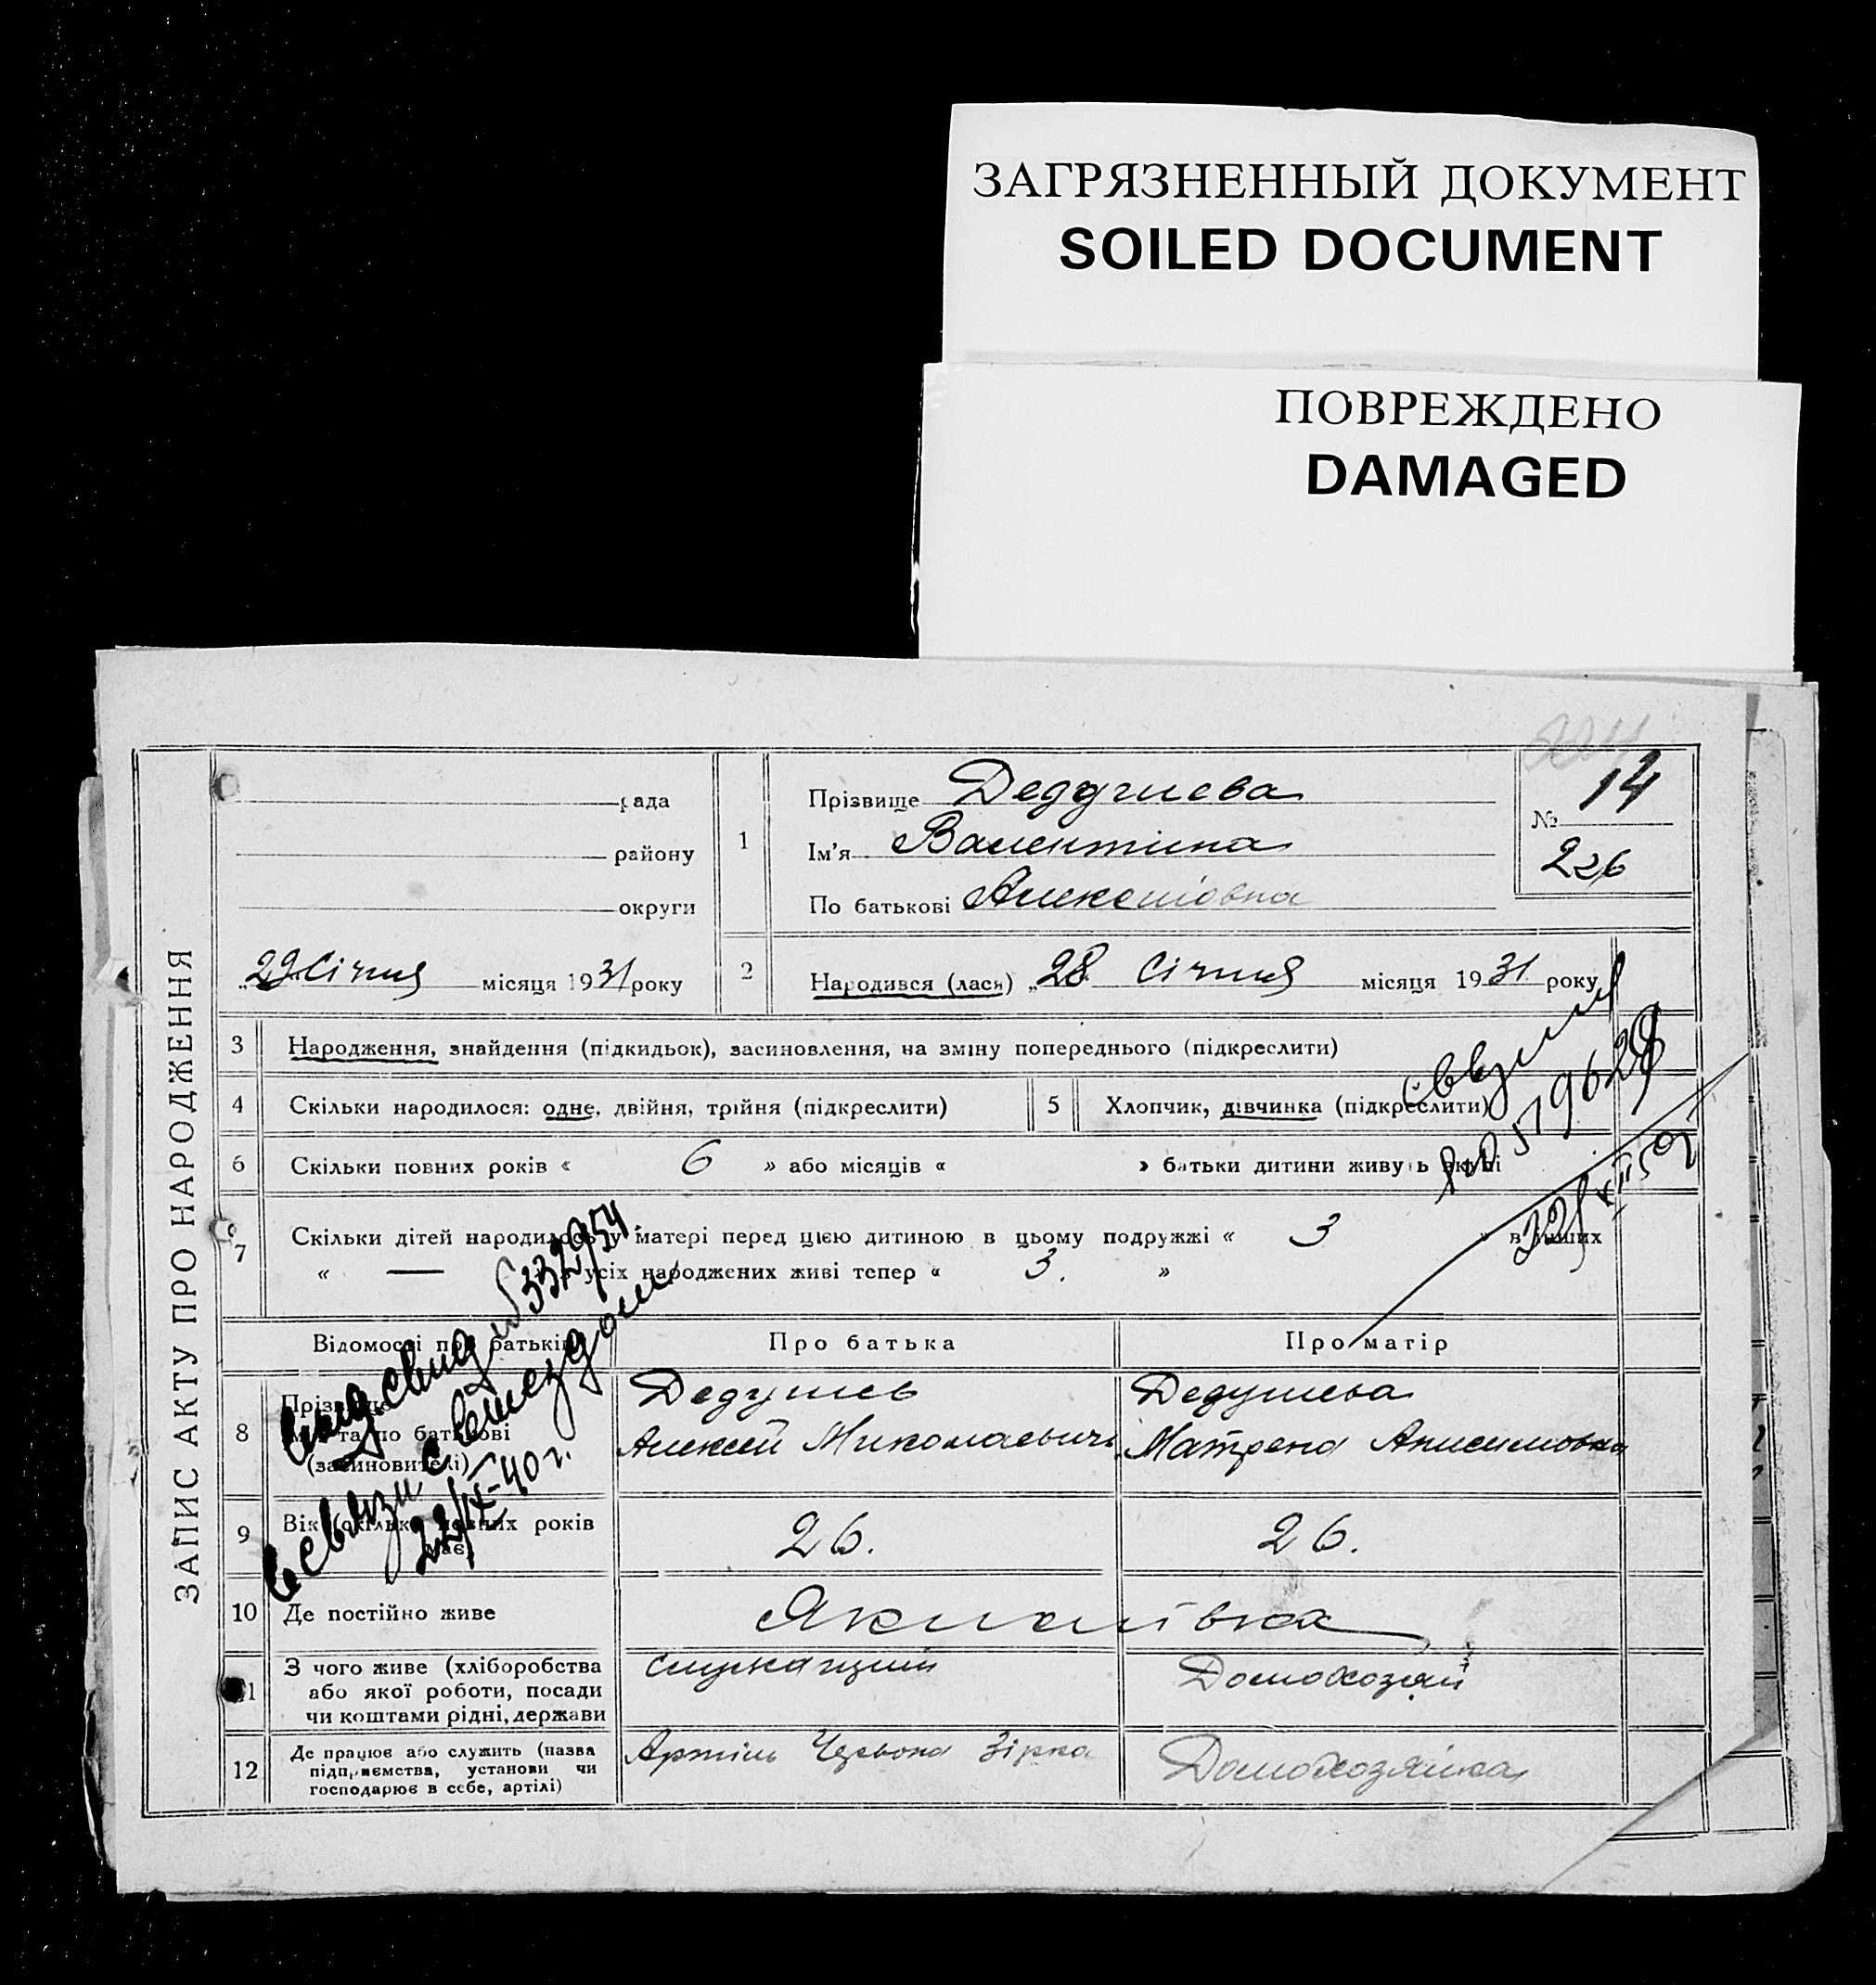 ЗАГРЯЗНЕННЫЙ ДОКУМЕНТ
SOILED DOCUMENT
ПОВРЕЖДЕНО
DAMAGED
ЗАПИС АКТУ ПРО НАРОДЖЕННЯ
рада
району
округи
„29 Січня місяця 1931 року
1
Прізвище Дедушева
Ім'я Валентина
По батькові Алексеіовна
№ 14
226
2 Народився (лася) „28 Січня місяця 1931 року
3 Народження, знайдення (підкидьок), засиновлення, на зміну попереднього (підкреслити)
4 Скільки народилося: одне, двійня, трійня (підкреслити)
5 Хлопчик, дівчинка (підкреслити)
6 Скільки повних років « 6 » або місяців « » батьки дитини живуть вкупі
7 Скільки дітей народилось у матері перед цією дитиною в цьому подружжі « 3 » в інших
« — » з усіх народжених живі тепер « 3. »
Відомості про батьків
Про батька
Про матір
8 Прізвище
ім'я та по батькові
(засиновителі)
Дедушев
Алексей Миколаевичъ
Дедушева
Матрена Анисимовна
9 Вік (скільки повних років
має)
26.
26.
10 Де постійно живе
Якимівка
11 З чого живе (хліборобства
або якої роботи, посади
чи коштами рідні, держави
служащий
Домохозяй
12 Де працює або служить (назва
підприємства, установи чи
господарює в себе, артілі)
Артіль Червона Зірка
Домохозяйка
в связи с выездом
22/IX-40 г.